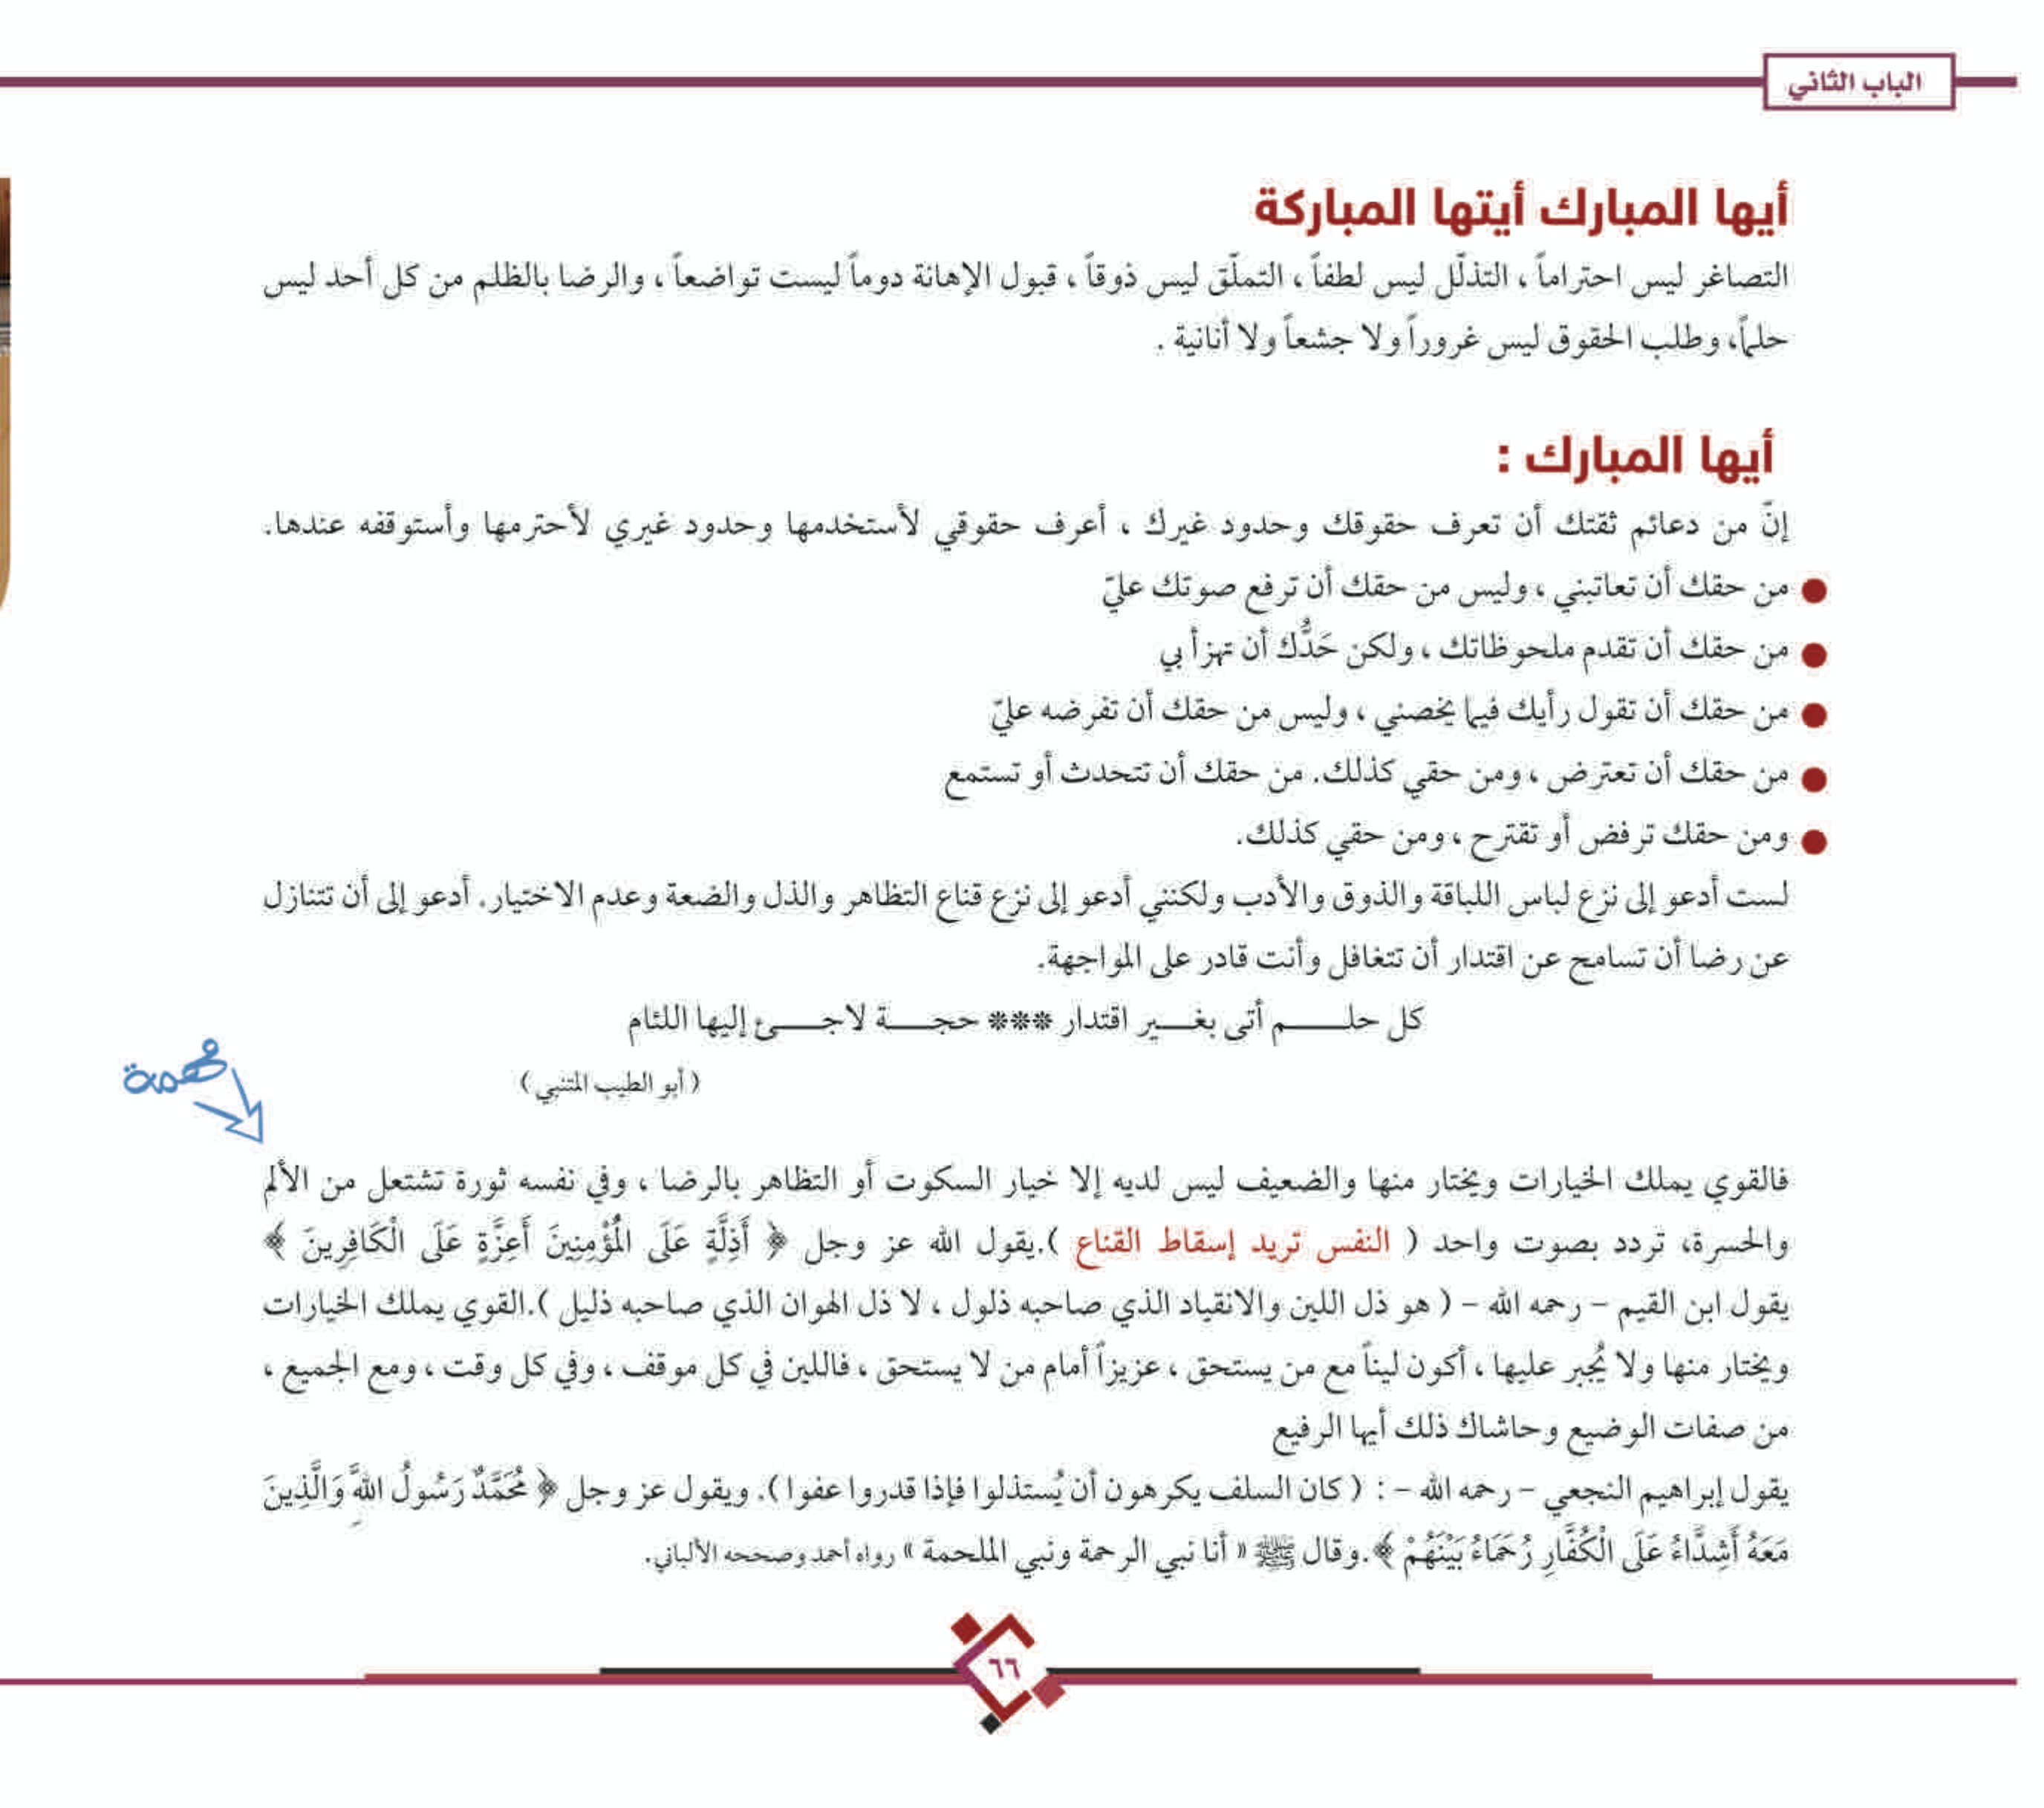 الباب الثاني
أيها المبارك أيتها المباركة
التصاغر ليس احتراماً ، التذلّل ليس لطفاً ، التملّق ليس ذوقاً ، قبول الإهانة دوماً ليست تواضعاً ، والرضا بالظلم من كل أحد ليس
حلماً، وطلب الحقوق ليس غروراً ولا جشعاً ولا أنانية .
أيها المبارك :
إنّ من دعائم ثقتك أن تعرف حقوقك وحدود غيرك ، أعرف حقوقي لأستخدمها وحدود غيري لأحترمها وأستوقفه عندها.
● من حقك أن تعاتبني ، وليس من حقك أن ترفع صوتك عليّ
● من حقك أن تقدم ملحوظاتك ، ولكن حَدُّك أن تهزأ بي
● من حقك أن تقول رأيك فيما يخصني ، وليس من حقك أن تفرضه عليّ
● من حقك أن تعترض ، ومن حقي كذلك. من حقك أن تتحدث أو تستمع
● ومن حقك ترفض أو تقترح ، ومن حقي كذلك.
لست أدعو إلى نزع لباس اللباقة والذوق والأدب ولكنني أدعو إلى نزع قناع التظاهر والذل والضعة وعدم الاختيار. أدعو إلى أن تتنازل
عن رضا أن تسامح عن اقتدار أن تتغافل وأنت قادر على المواجهة.
كل حلـــــم أتى بغـــير اقتدار *** حجـــة لاجـــئ إليها اللئام
( أبو الطيب المتنبي )
مهمة
فالقوي يملك الخيارات ويختار منها والضعيف ليس لديه إلا خيار السكوت أو التظاهر بالرضا ، وفي نفسه ثورة تشتعل من الألم
والحسرة، تردد بصوت واحد ( النفس تريد إسقاط القناع ).يقول الله عز وجل ﴿ أَذِلَّةٍ عَلَى الْمُؤْمِنِينَ أَعِزَّةٍ عَلَى الْكَافِرِينَ ﴾
يقول ابن القيم – رحمه الله – ( هو ذل اللين والانقياد الذي صاحبه ذلول ، لا ذل الهوان الذي صاحبه ذليل ).القوي يملك الخيارات
ويختار منها ولا يُجبر عليها ، أكون ليناً مع من يستحق ، عزيزاً أمام من لا يستحق ، فاللين في كل موقف ، وفي كل وقت ، ومع الجميع ،
من صفات الوضيع وحاشاك ذلك أيها الرفيع
يقول إبراهيم النجعي – رحمه الله – : ( كان السلف يكرهون أن يُستذلوا فإذا قدروا عفوا ). ويقول عز وجل ﴿ مُحَمَّدٌ رَسُولُ اللهِ وَالَّذِينَ
مَعَهُ أَشِدَّاءُ عَلَى الْكُفَّارِ رُحَمَاءُ بَيْنَهُمْ ﴾.وقال ﷺ « أنا نبي الرحمة ونبي الملحمة » رواه أحمد وصححه الألباني.
٦٦